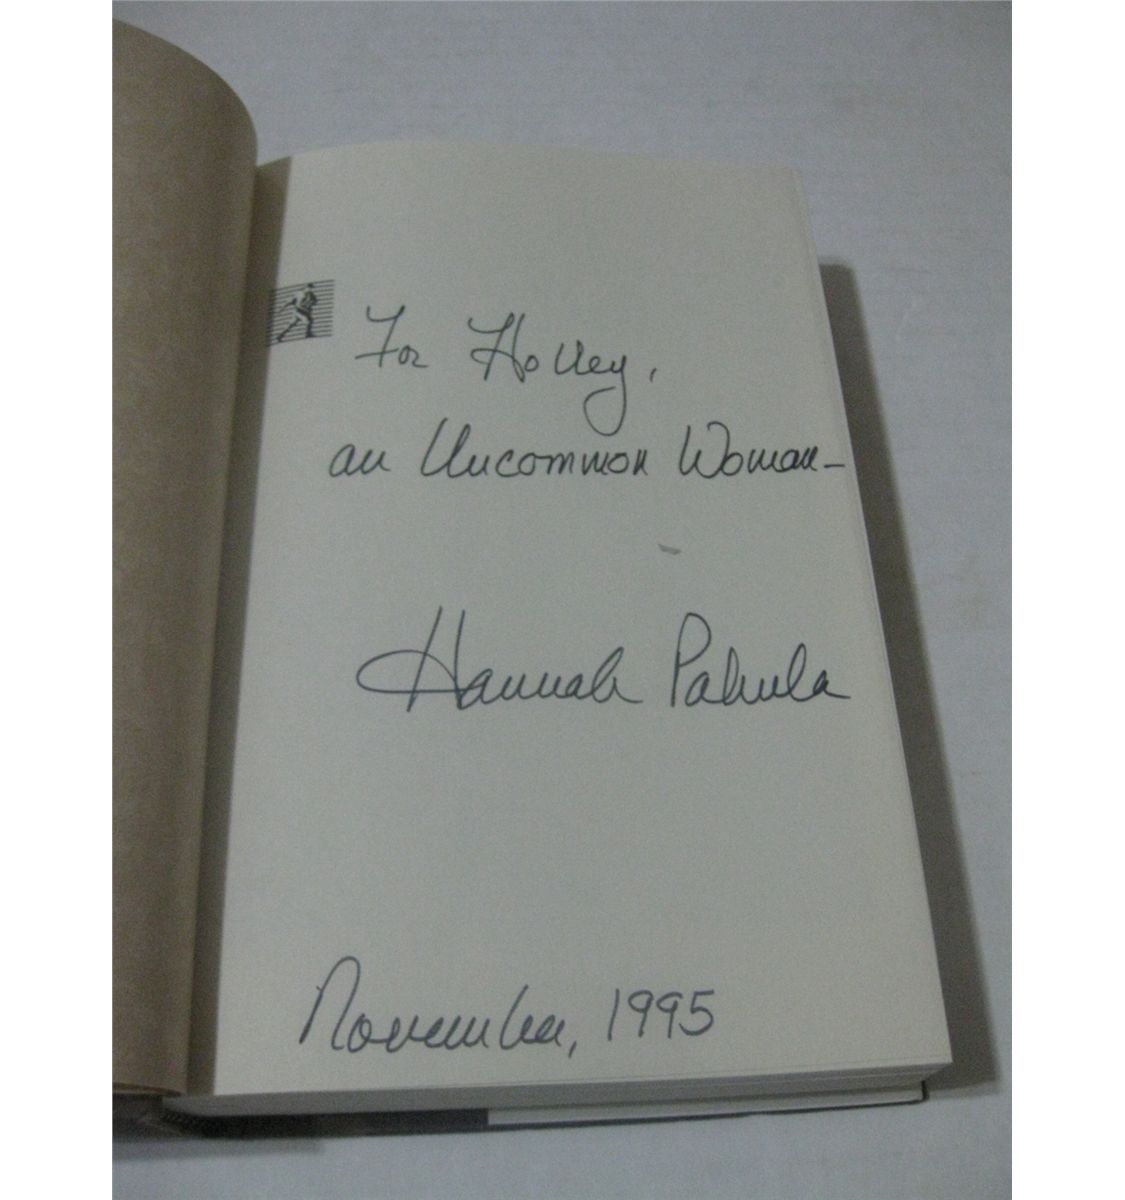 For Holley,
an Uncommon Woman–
Hannah Pakula
November, 1995